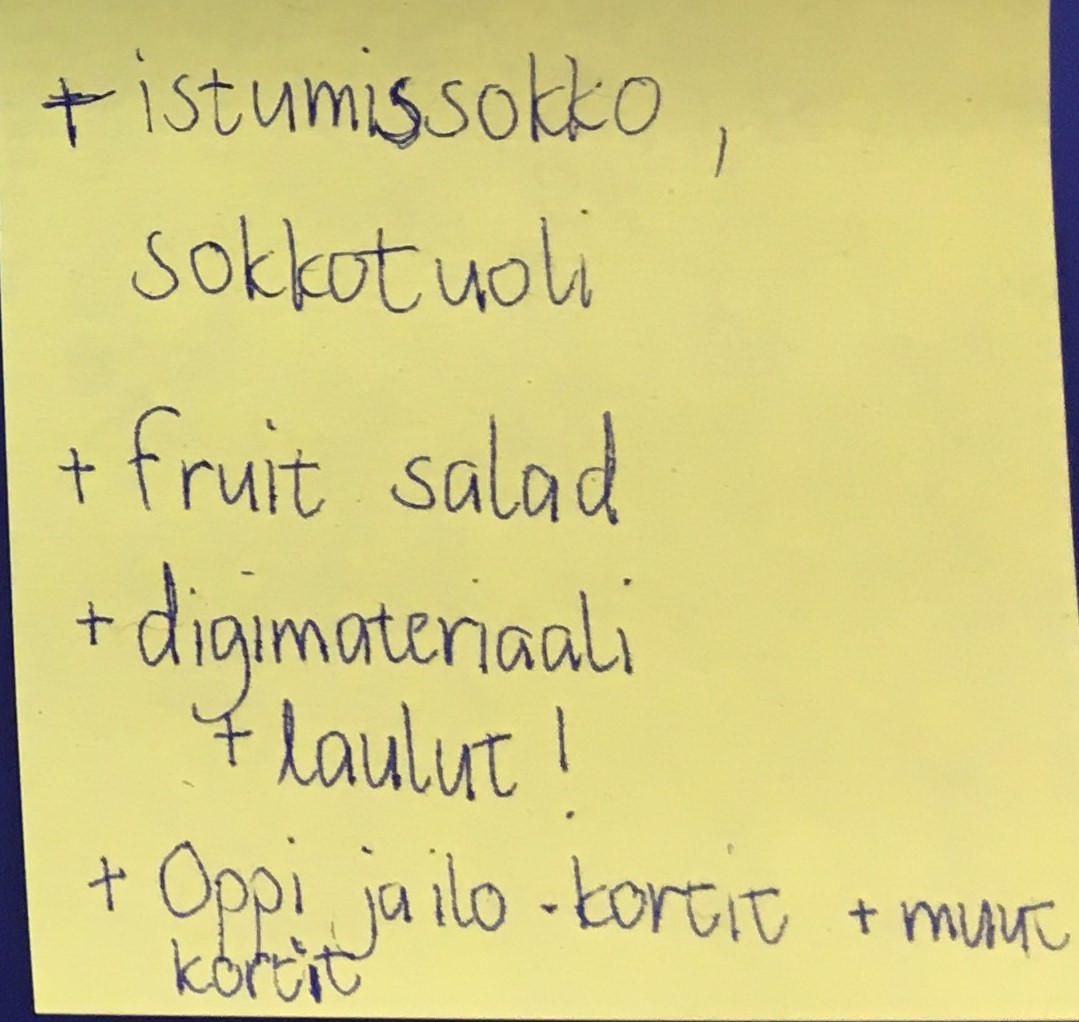 + istumissokko,
sokkotuoli
+ fruit salad
+ digimateriaali
+ laulut!
+ Oppi ja ilo -kortit + muut
kortit